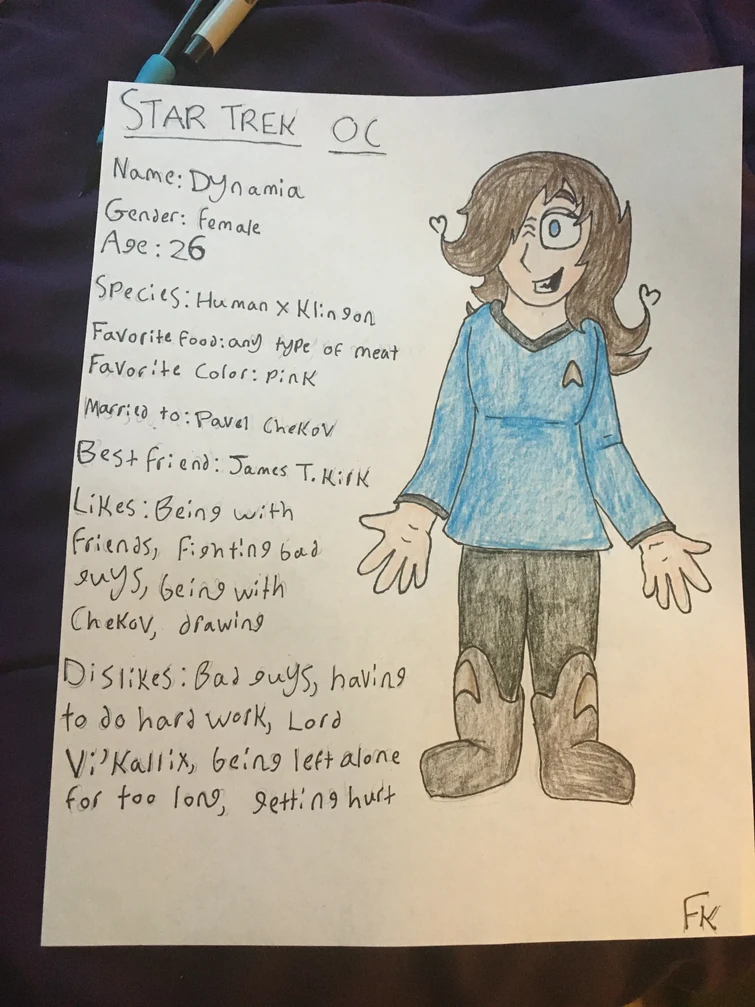 STAR TREK OC
Name: Dynamia
Gender: Female
Age: 26
Species: Human x Klingon
Favorite Food: any type of meat
Favorite Color: Pink
Married to: Pavel Chekov
Best friend: James T. Kirk
Likes: Being with
friends, fighting bad
guys, being with
Chekov, drawing
Dislikes: Bad guys, having
to do hard work, Lord
Vi'Kallix, being left alone
for too long, getting hurt
FK